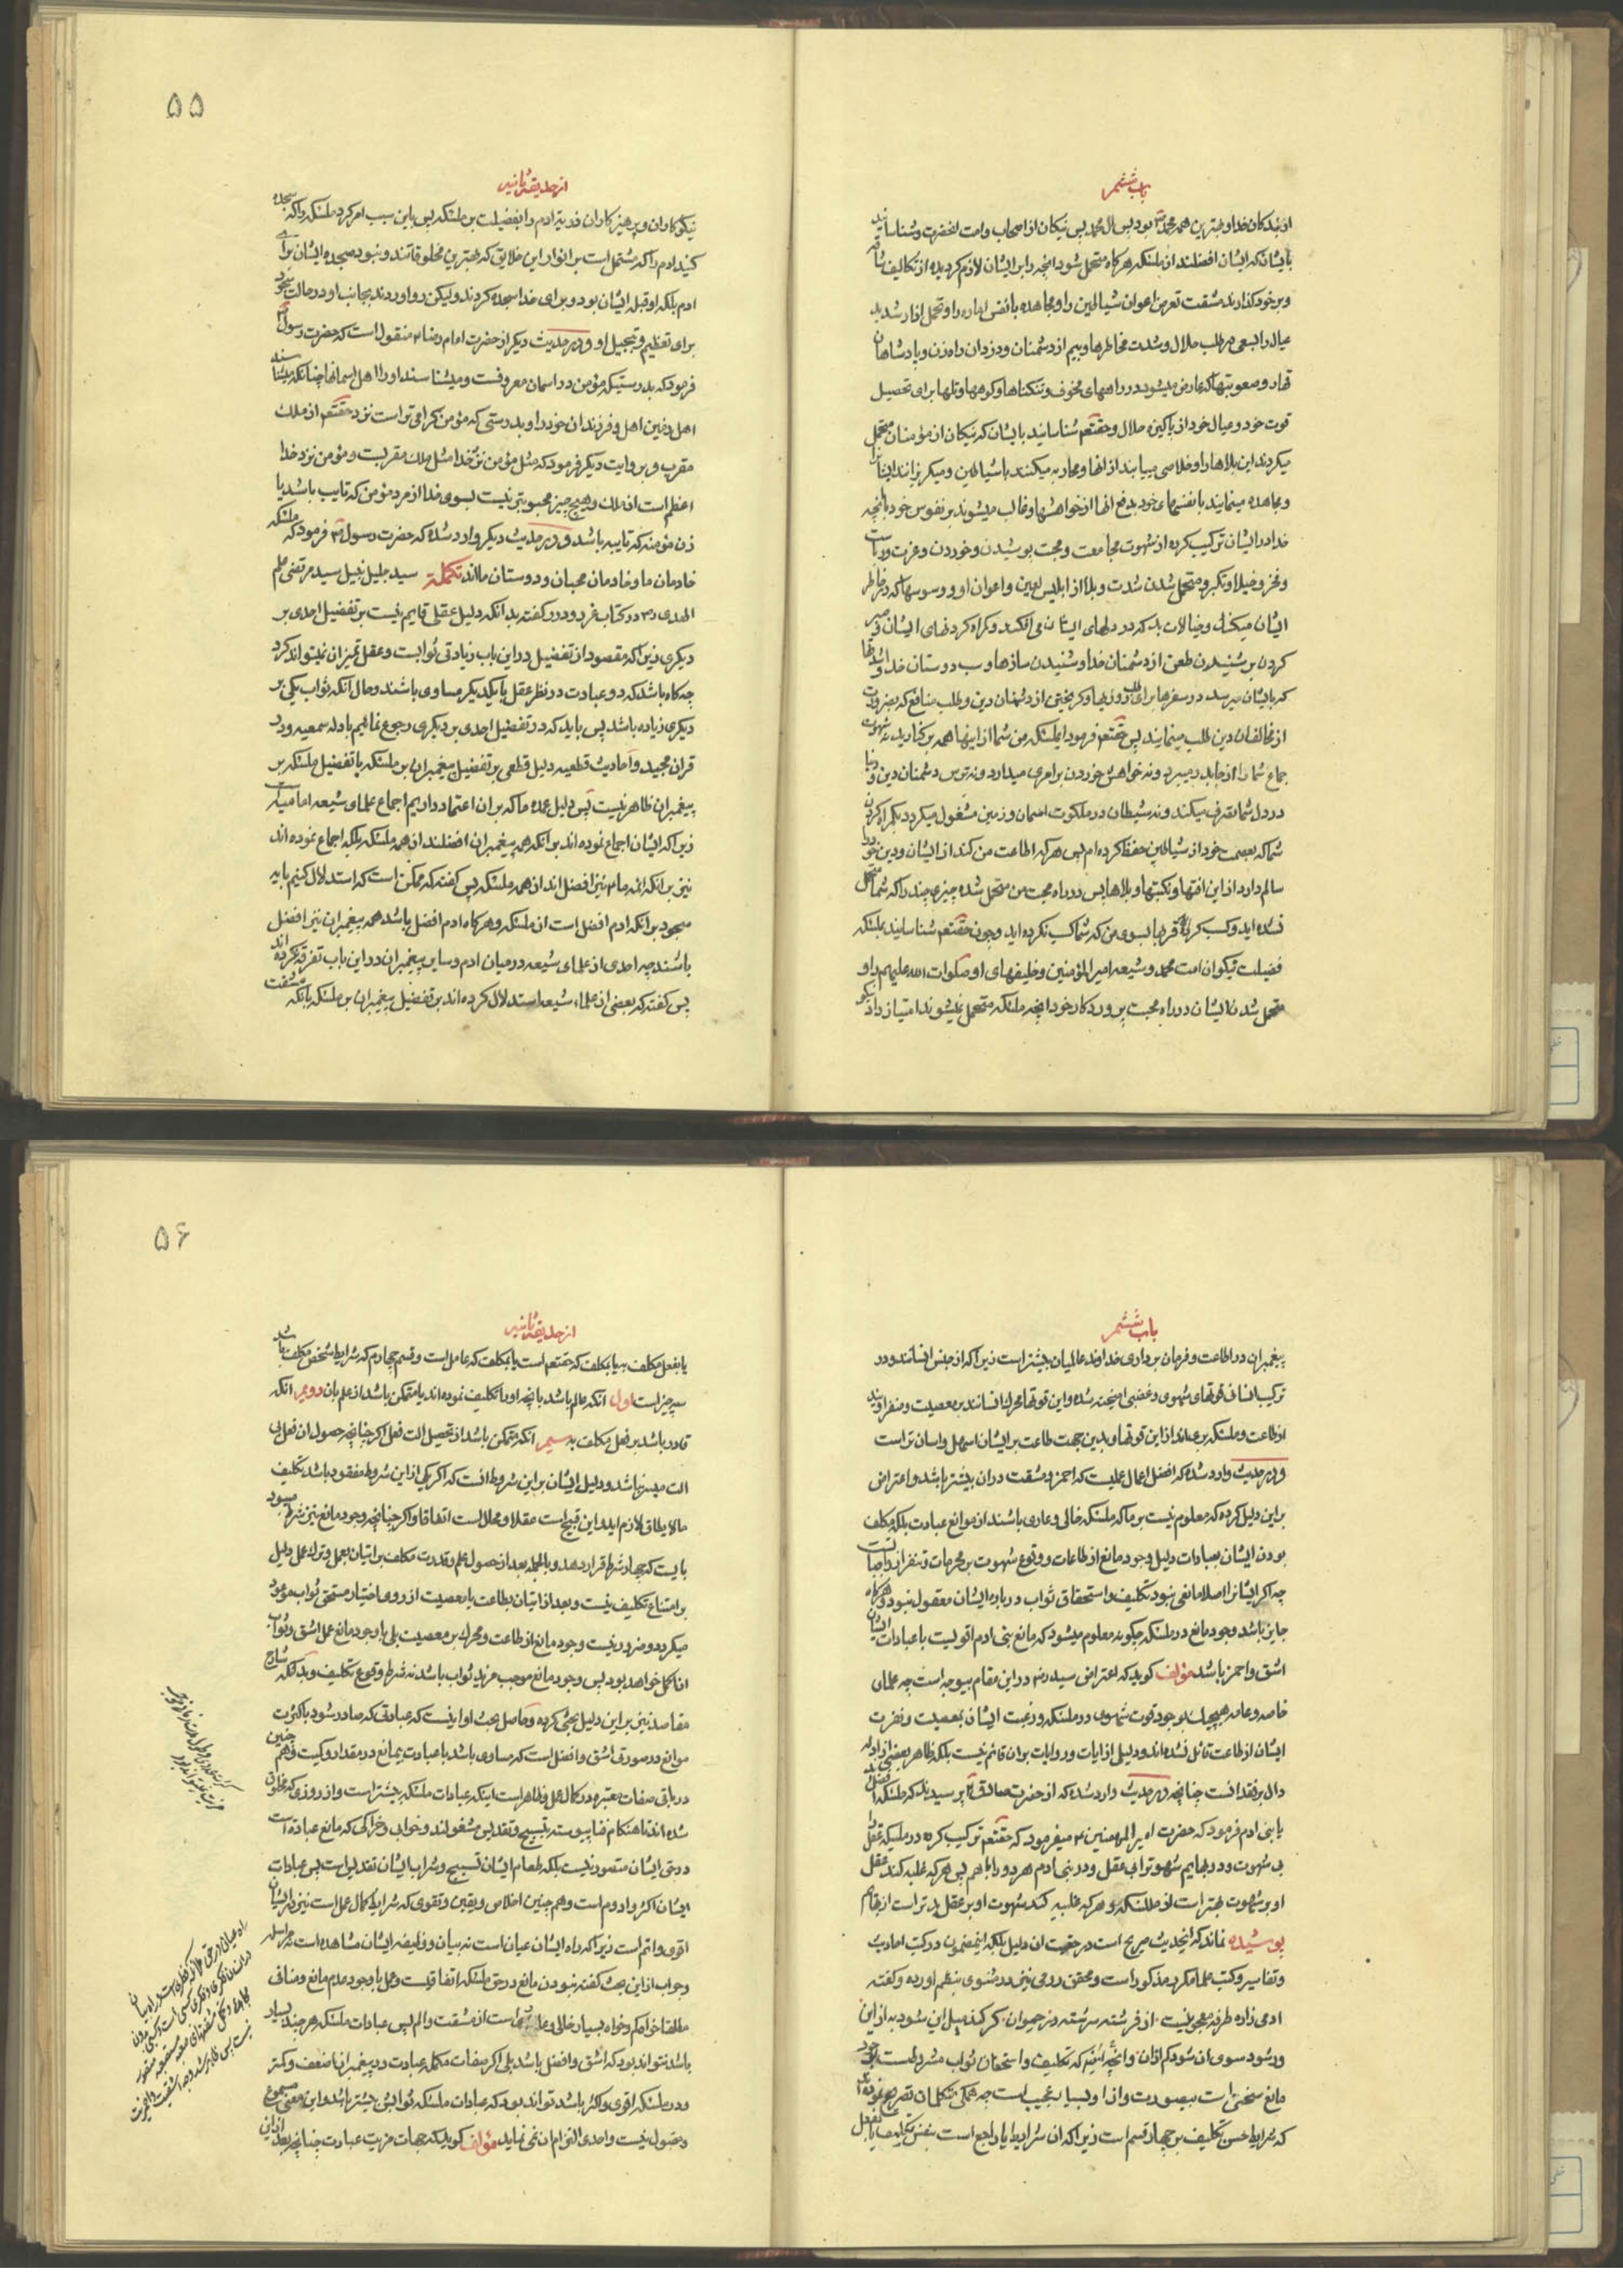 باب ششم
از بندکان خدا و بهترین همه محمد بود پس ال محمد پس نیکان از اصحاب و امت انحضرت و شناسانید
بایشان که ایشان افضلند از ملئکه هرکاه متحمل شوند انچه را بر ایشان لازم کردیده از تکالیف شاقه
و بر خود کذارند مشقت تعرض اعوان شیاطین را و مجاهده با نفس اماره را و تحمل ازار شدید
عیال را بسعی در طلب حلال و شدت مخاطرها و بیم از دشمنان و دزدان راه زن و پادشاهان
قهار و صعوبتها که عارض میشود در راههای مخوف و تنکناها و کوهها و تلها برای تحصیل
قوت خود و عیال خود از پاکیزه حلال و حقتعم شناسانید بایشان که نیکان از مؤمنان متحمل
میکردند این بلاها را و خلاصی مییابند از انها و محاربه میکنند با شیاطین و میکریزانند ایشانرا
و مجاهده مینمایند با نفسهای خود بدفع انها از خواهشها و غالب میشوند بر نفوس خود باانچه
خدا در ایشان ترکیب کرده از شهوت مجامعت و محبت پوشیدن و خوردن و عزت و ریاست
و فخر و خیلا و تکبر و متحمل شدن شدت و بلا از ابلیس لعین و اعوان او و وسوسها که در خاطر
ایشان میکند و خیالات بد که در دلهای ایشان می افکند و کراه کردنهای ایشان و صبر
کردن بر شنیدن طعن از دشمنان خدا و شنیدن سازها و سب دوستان خدا و
که بایشان میرسد در سفرها برای طلب روزیها و کریختن از دشمنان دین و طلب منافع که بضرورت
از مخالفان دین طلب مینمایند پس حقتعم فرمود ایملئکه من شما از اینها همه بر کنارید نه شهوت
جماع شما را از جا بدر میبرد و نه خواهش خوردن بر امری میدارد و نه ترس دشمنان دین و دنیا
در دل شما تصرف میکند و نه شیطان در ملکوت اسمان و زمین مشغول میکردد بکمراه کردن
شما که بعصمت خود از شیاطین حفظ کرده ام پس هرکه اطاعت من کند از ایشان و دین خود را
سالم دارد از این افتها و نکبتها و بلاها پس در راه محبت من متحمل شده چیزی چند را که شما متحمل
نشده اید و کسب کرده قربها بسوی من که شما کسب نکرده اید و چون حقتعم شناسانید بملئکه
فضیلت نیکوان امت محمد و شیعه امیرالمؤمنین و خلیفهای او صلوات الله علیهم را و
متحمل شدن ایشان در راه محبت پروردکار خود انچه ملئکه متحمل نمیشوند امتیاز داد نیکو
۵۵
از حدیقه ثانیه
نیکوکاران و پرهیزکاران فدریه ادم را بفضیلت بر ملئکه پس باین سبب امر کرد ملئکه را که سجده
کنید ادم را که مشتمل است بر انوار این خلایق که بهترین مخلوقاتند و نبود سجده ایشان برای
ادم بلکه او قبله ایشان بود و برای خدا سجده کردند ولیکن رو اوردند بجانب او در حالت سجود
برای تعظیم و تبجیل او و در حدیث دیکر از حضرت امام رضا ع منقول است که حضرت رسول
فرمود که بدرستیکه مؤمن در اسمان معروفست و میشناسند او را اهل اسمانها چنانکه میشناسند
اهل زمین اهل و فرزندان خود را و بدرستی که مؤمن کرامی تر است نزد حقتعم از ملک
مقرب و بروایت دیکر فرمود که مثل مؤمن نزد خدا مثل ملک مقربست و مؤمن نزد خدا
اعظم است از ملک و هیچ چیز محبوبتر نیست بسوی خدا از مرد مؤمن که تایب باشد یا
زن مؤمنه که تایبه باشد و در حدیث دیکر وارد شده که حضرت رسول فرمود که ملئکه
خادمان ما و خادمان محبان و دوستان مااند تکمله سید جلیل نبیل سید مرتضی علم
الهدی در کتاب غرر و درر کفته بدانکه دلیل عقلی قایم نیست بر تفضیل احدی بر
دیکری زیرا که مقصود از تفضیل در این باب زیادتی ثوابست و عقل تمیز ان نمیتواند کرد
چه کاه باشد که دو عبادت در نظر عقل با یکدیکر مساوی باشند و حال آنکه ثواب یکی بر
دیکری زیاده باشد پس باید که در تفضیل احدی بر دیکری رجوع نمائیم بادله سمعیه و در
قران مجید و احادیث قطعیه دلیل قطعی بر تفضیل پیغمبران بر ملئکه یا تفضیل ملئکه بر
پیغمبران ظاهر نیست پس دلیل عمده ما که بر ان اعتماد داریم اجماع علمای شیعه امامیه است
زیرا که ایشان اجماع نموده اند بر انکه همه پیغمبران افضلند از همه ملئکه بلکه اجماع نموده اند
نیز بر انکه ائمه ما نیز افضل اند از همه ملئکه پس کفته که ممکن است که استدلال کنیم بایه
سجود بر انکه ادم افضل است از ملئکه و هرکاه ادم افضل باشد همه پیغمبران نیز افضل
باشند چه احدی از علمای شیعه در میان ادم و سایر پیغمبران در این باب تفرقه نکرده اند
پس کفته که بعضی از علماء شیعه استدلال کرده اند بر تفضیل پیغمبران بر ملئکه بانکه مشقت
باب ششم
پیغمبران در اطاعت و فرمان برداری خداوند عالمیان بیشتر است زیرا که از جنس انسانند و در
ترکیب انسان قوتهای شهوی و غضبی امیخته شده و این قوتها محرک انسانند بر معصیت و منفر اویند
از طاعت و ملئکه بری اند از این قوتها و بدین جهت طاعت بر ایشان اسهل و اسان تر است
و در حدیث وارد شده که افضل اعمال عملیست که احمز و مشقت در ان بیشتر باشد و اعتراض
بر این دلیل کرده که معلوم نیست بر ما که ملئکه خالی و عاری باشند از موانع عبادت بلکه مکلف
بودن ایشان بعبادات دلیل وجود مانع از طاعات و وقوع شهوت بر محرمات و تنفر از واجباتست
چه اکر ایشانرا اصلا مانعی نبود تکلیف و استحقاق ثواب درباره ایشان معقول نبود و هرکاه
جایز باشد وجود مانع در ملئکه چکونه معلوم میشود که مانع بنی ادم اقویست یا عبادات ایشان
اشق و احمز باشد مؤلف کوید که اعتراض سید در این مقام بیوجه است چه علمای
خاصه و عامه هیچیک بوجود قوت شهوی در ملئکه و رغبت ایشان بمعصیت و نفرت
ایشان از طاعت قائل نشده اند و دلیلی از ایات و روایات بران قائم نیست بلکه ظاهر بعضی از ادله
دال بر فقد انست چنانچه در حدیث وارد شده که از حضرت صادق پرسیدند که ملئکه افضلند
یا بنی ادم فرمود که حضرت امیرالمؤمنین ع میفرمود که حقتعم ترکیب کرده در ملئکه عقل را
بی شهوت و در بهایم شهوترا بی عقل و در بنی ادم هر دو را با هم پس هرکه غلبه کند عقل
او بر شهوت بهتر است از ملئکه و هرکه غلبه کند شهوت او بر عقل بدتر است از بهایم
پوشیده نماند که اینحدیث صریح است در حقیت ان دلیل بلکه اینمضمون در کتب احادیث
و تفاسیر و کتب علما مکرر مذکور است و محقق رومی نیز در مثنوی بنظم اورده و کفته
ادمی زاده طرفه معجونیست از فرشته سرشته و ز حیوان کر کند میل این شود به از این
ور شود سوی ان شود کم از ان و انچه کفته که تکلیف و استحقاق ثواب مشروطست بوجود
مانع سخنی است بیصورت و از او بسیار عجیب است چه همکی متکلمان تصریح نموده اند
که شرایط حسن تکلیف بر چهار قسم است زیرا که ان شرایط یا راجع است بنفس تکلیف یا بفعل
۵۶
از حدیقه ثانیه
یا بفعل مکلف به یا بمکلف که حقتعم است یا بمکلف که عامل است و قسم چهارم که شرایط شخص مکلف باشد
سه چیز است اول آنکه عالم باشد بانچه او را تکلیف نموده اند یا متمکن باشد از علم بان دویم انکه
قادر باشد بر فعل مکلف به سیم آنکه متمکن باشد از تحصیل الت فعل اکر چنانچه حصول ان فعل بی
الت میسر نباشد و دلیل ایشان بر این شروط انست که اکر یکی از این شروط مفقود باشد تکلیف
مالایطاق لازم اید و این قبیح است عقلا و محالست اتفاقا و اکر چنانچه وجود مانع نیز شرط میبود
بایست که چهار شرط قرار دهند و بالجمله بعد از حصول علم و قدرت مکلف بر اتیان بعمل و ترک عمل دلیل
بر امتناع تکلیف نیست و بعد از اتیان بطاعت یا معصیت از روی اختیار مستحق ثواب موعود
میکردد و ضرور نیست وجود مانع از طاعت و محرک بر معصیت بلی با وجود مانع عمل اشق و ثواب
ان اکمل خواهد بود پس وجود مانع موجب مزید ثواب باشد نه شرط وقوع تکلیف و بدانکه شارح
مقاصد نیز بر این دلیل بحثی کرده و حاصل بحث او اینست که عبادتی که صادر شود با کثرت
موانع در صورتی اشق و افضل است که مساوی باشد با عبادت بیمانع در مقدار و کمیت و هم چنین
در باقی صفات معتبره در کمال عمل و ظاهر است اینکه عبادات ملئکه بیشتر است و از روزی که مخلوق
شده اند تا هنکام فنا پیوسته بتسبیح و تقدیس مشغولند و خوابی و خراکی که مانع عبادت است
در حق ایشان متصور نیست بلکه طعام ایشان تسبیح و شراب ایشان تقدیس است پس عبادات
ایشان اکثر و ادوم است و هم چنین اخلاص و یقین و تقوی که شرایط کمال عمل است نیز در ایشان
اقوی و اتم است زیرا که راه ایشان عیان است نه بیان و وظیفه ایشان مشاهده است نه مراسله
و جواب از این بحث کفته نبودن مانع در حق ملئکه اتفاقیست و عمل با وجود عدم مانع و منافی
مطلقا خواه کم و خواه بسیار خالی و عاری است از مشقت و الم پس عبادات ملئکه هر چند بسیار
باشد نتواند بود که اشق و افضل باشد بلی اکر صفات مکمله عبادت در پیغمبران اضعف و کمتر
و در ملئکه اقوی و اکثر باشد تواند بود که عبادات ملئکه ثوابش بیشتر باشد و این معنی مسموع
و مقبول نیست و احدی التزام ان نمی نماید مؤلف کوید که جهات مزیت عبادت چنانچه بعد از این